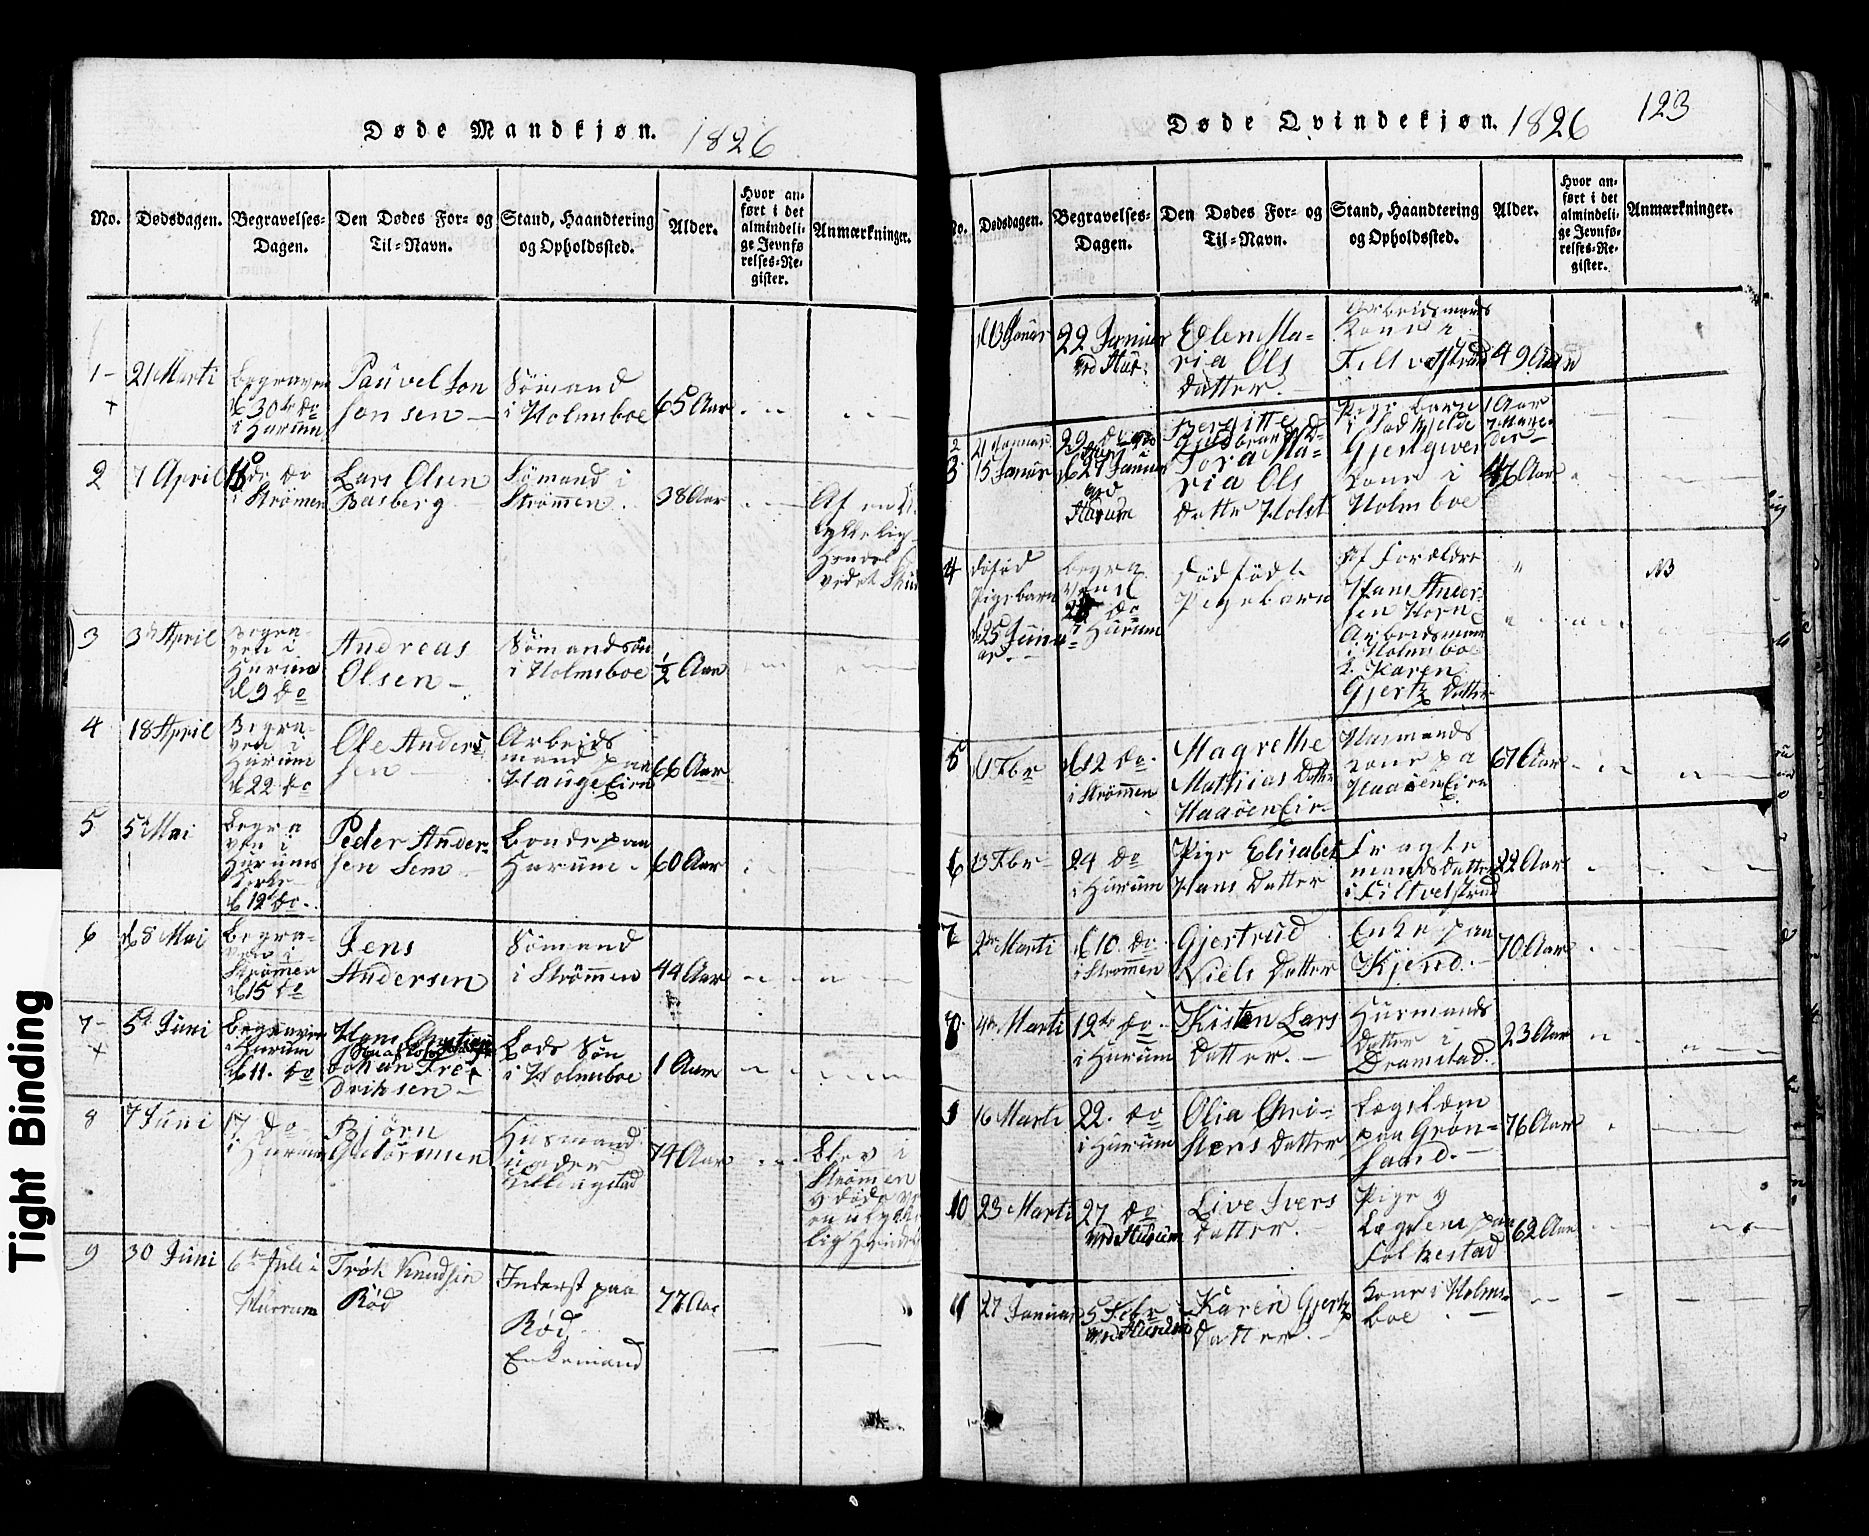 Tight Binding
Døde Mandkjøn. 1826
No.
Dødsdagen.
Begravelses-
Dagen.
Den Dødes For- og
Til-Navn.
Stand, Haandtering
og Opholdssted.
Alder.
Hvor an-
ført i det
almindeli-
ge Jevnfø
relses-Re-
gister.
Anmærkninger.
1 -
21 Marti
begraven
d 30te do
i Hurum
Pauvel Jon
Jensen
Sömand
i Holmsboe
65 Aar
2
7 April
do
i Strömen
Lars Olsen
Basberg
Sömand i
Strömmen
38 Aar
Af en
lykkelig
Hendel
3
3d April
Begra-
ven i
Hurum
d 9 do
Andreas
Olsen -
Sömandsön
i Holmsboe
1/2 Aar
4
18 April
Begra-
ven i
Hurum
d 22 do
Ole Anders
sen
Arbeids
mand paa
Hauge Eien
66 Aar
5
5 Mai
Begra
ven i
Hurums
Kirke
d 12 do -
Peder Ander-
sen Sem
Bonde paa
Hurum -
60 Aar
6
d 8 Mai
Begra-
ven i
Strömen
d 15 do
Jens
Andersen
Sömand
i Strömmen
44 Aar
7 -
5d Juni
Begraven
i Hurum
d 11. do
Hans Christian
Johan Fre-
driksen -
Lods Sön
i Holmsboe
1 Aar
8
7 Juni
17 do
i Hurum
Björn
Husmand
under
74 Aar
Blev i
Strömen
9
30 Juni
6te Juli i
Hurrum
Tröls Knudsin
Röd
Inderst paa
Röd
Enkemand
77 Aar
Døde Qvindekjøn. 1826 123
No.
Dødsdagen.
Begravelses-
Dagen.
Den Dødes For- og
Til-Navn.
Stand, Haandtering
og Opholdssted.
Alder.
Hvor an-
ført i det
almindeli-
ge Jevnfø-
relses-Re-
gister.
Anmærkninger.
d 13 Januar
22 Januar
ved Hur:
Eelen Ma-
ria Ols
datter
Arbeidsmands
Kone i
Filtvetstrand
49 Aar
2
21 Januar
29 do
Bergitte
Gulbrands D-
Pige barn
i
Gjerigven
1 Aar
3
15 Januar
d 27 Januar
ved
Hurum
Tora Ma-
ria Ols
datter Holst
Kone i
Holmsboe
46 Aar
4
Pigebarn
d 25 Janu-
ar. -
begra
ven d
do
i Hurum
dödfödt
Pigebarn
Af Foreldre
Hans Ander-
sen Horn
Arbeidsmand
i Holmsboe
& Karen
Gjertz Datter
NB
5
d 1 Fbr
d 12 do.
i Strömmen
Magrethe
Mathias Datter
Haaöen Eie
Husmands
Kone paa
Haaöen Eien
67 Aar
6
13 Fbr
24 do
i Hurum
Pige Elisabet
Hans Datter
Fragte
mands datter
i Filtvetstrand
22 Aar
7
2den Marti
d 10. do
i Strömmen
Gjertrud
Niels Datter
Enke paa
Kjend. -
70 Aar
8
4de Marti
12te do -
i Hurum
Kisten Lars
datter. -
Husmands
Datter i
Dramstad.
23 Aar
9
16 Marti
22. do
i Hurum
Olia Chri-
stens Datter
Lægslem
paa Grön-
sand. -
76 Aar
10
23 Marti
27 do
ved Hurum
Live Ivers
Datter.
Pige &
Lægslem paa
Folkestad
62 Aar
11
27 Januar
5 Febr
ved Hurum
Karen Gjertz
Datter. -
Kone i Holms-
boe